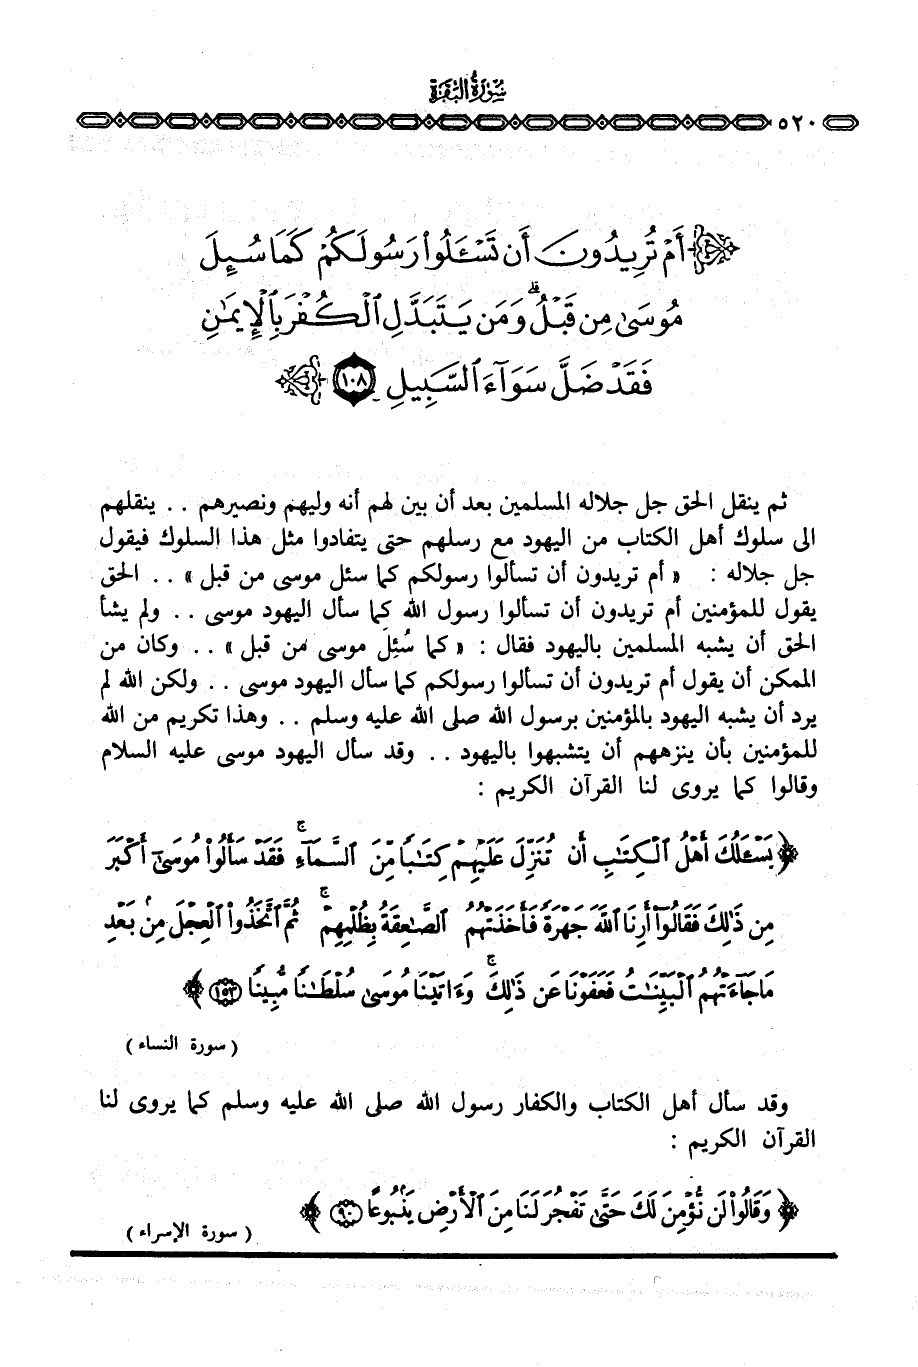 سُورَةُ البَقَرَة
٥٢٠
أَمْ تُرِيدُونَ أَن تَسْـَٔلُوا۟ رَسُولَكُمْ كَمَا سُئِلَ
مُوسَىٰ مِن قَبْلُ ۗ وَمَن يَتَبَدَّلِ ٱلْكُفْرَ بِٱلْإِيمَـٰنِ
فَقَدْ ضَلَّ سَوَآءَ ٱلسَّبِيلِ ١٠٨
ثم ينقل الحق جل جلاله المسلمين بعد أن بين لهم أنه وليهم ونصيرهم . . ينقلهم
الى سلوك أهل الكتاب من اليهود مع رسلهم حتى يتفادوا مثل هذا السلوك فيقول
جل جلاله : « أم تريدون أن تسألوا رسولكم كما سئل موسى من قبل » . . الحق
يقول للمؤمنين أم تريدون أن تسألوا رسول الله كما سأل اليهود موسى . . ولم يشأ
الحق أن يشبه المسلمين باليهود فقال : « كما سُئِلَ موسى من قبل » . . وكان من
الممكن أن يقول أم تريدون أن تسألوا رسولكم كما سأل اليهود موسى . . ولكن الله لم
يرد أن يشبه اليهود بالمؤمنين برسول الله صلى الله عليه وسلم . . وهذا تكريم من الله
للمؤمنين بأن ينزههم أن يتشبهوا باليهود . . وقد سأل اليهود موسى عليه السلام
وقالوا كما يروى لنا القرآن الكريم :
﴿ يَسْـَٔلُكَ أَهْلُ ٱلْكِتَـٰبِ أَن تُنَزِّلَ عَلَيْهِمْ كِتَـٰبًا مِّنَ ٱلسَّمَآءِ ۚ فَقَدْ سَأَلُوا۟ مُوسَىٰٓ أَكْبَرَ
مِن ذَٰلِكَ فَقَالُوٓا۟ أَرِنَا ٱللَّهَ جَهْرَةً فَأَخَذَتْهُمُ ٱلصَّـٰعِقَةُ بِظُلْمِهِمْ ۚ ثُمَّ ٱتَّخَذُوا۟ ٱلْعِجْلَ مِنۢ بَعْدِ
مَا جَآءَتْهُمُ ٱلْبَيِّنَـٰتُ فَعَفَوْنَا عَن ذَٰلِكَ ۚ وَءَاتَيْنَا مُوسَىٰ سُلْطَـٰنًا مُّبِينًا ١٥٣ ﴾
( سورة النساء )
وقد سأل أهل الكتاب والكفار رسول الله صلى الله عليه وسلم كما يروى لنا
القرآن الكريم :
﴿ وَقَالُوا۟ لَن نُّؤْمِنَ لَكَ حَتَّىٰ تَفْجُرَ لَنَا مِنَ ٱلْأَرْضِ يَنۢبُوعًا ٩٠ ﴾
( سورة الإسراء )